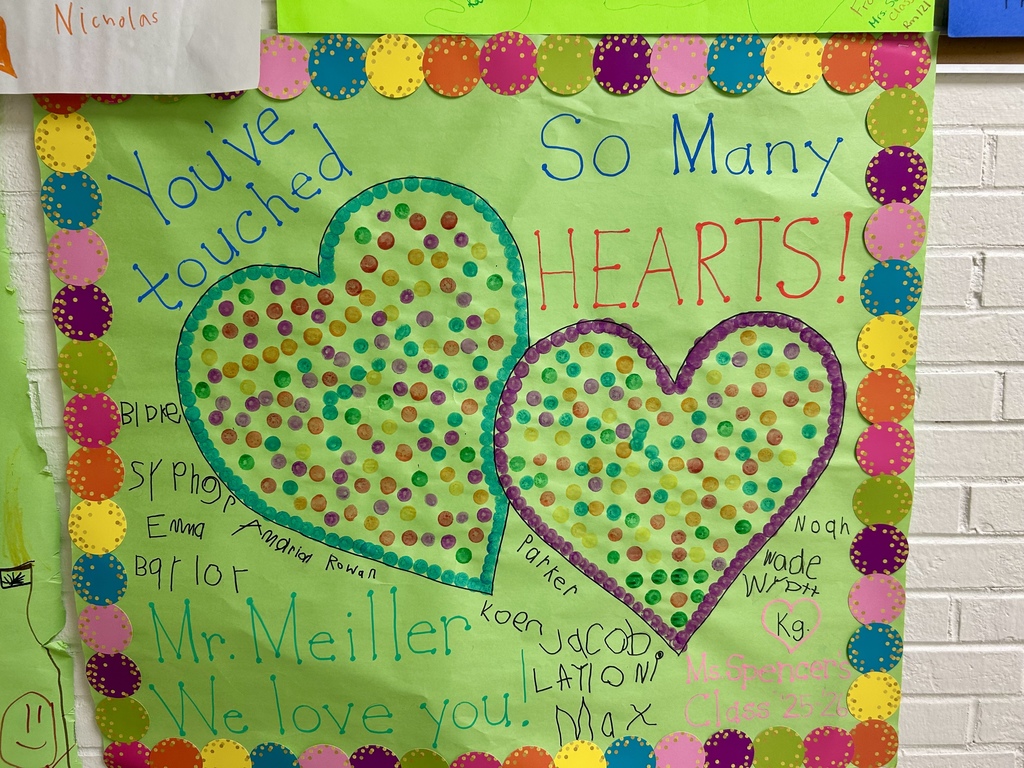 Nicholas
Mrs. S
Class
Rm 121
You've
touched
So Many
HEARTS!
Emma
Amarion
Rowan
Barlor
Parker
Noah
Wade
Wyatt
Kg.
Koen
Jacob
LAYTON
Max
Mr. Meiller
We love you!
Ms. Spencer's
Class 25-26